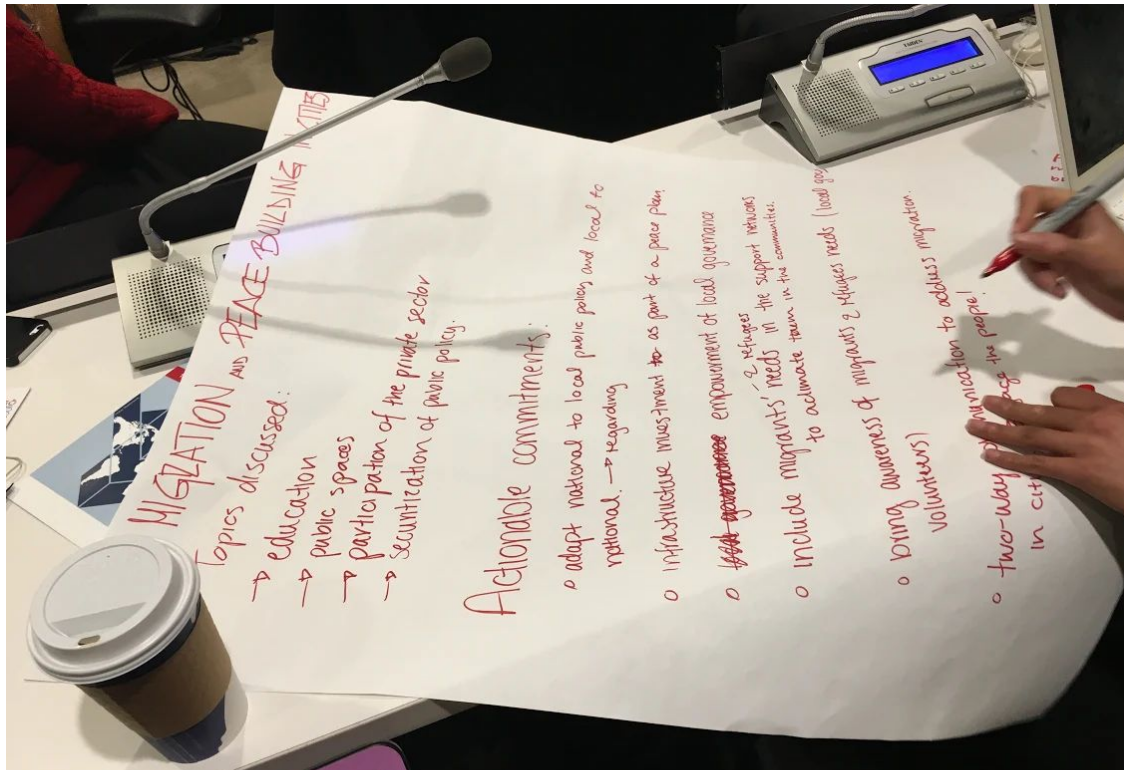 MIGRATION AND PEACE BUILDING IN CITIES
Topics discussed:
→ education
→ public spaces
→ participation of the private sector
→ securitization of public policy.
Actionable commitments:
o adapt national to local public policy and local to
national. → regarding
o infrastructure investment as part of a peace plan
o empowerment of local governance
& refugees
o include migrants' needs in the support networks
to aclimate them in the communities.
o bring awareness of migrants & refugees needs (local gov
volunteers)
o two-way communication to address migration
in cit engage the people!
TAIDEN